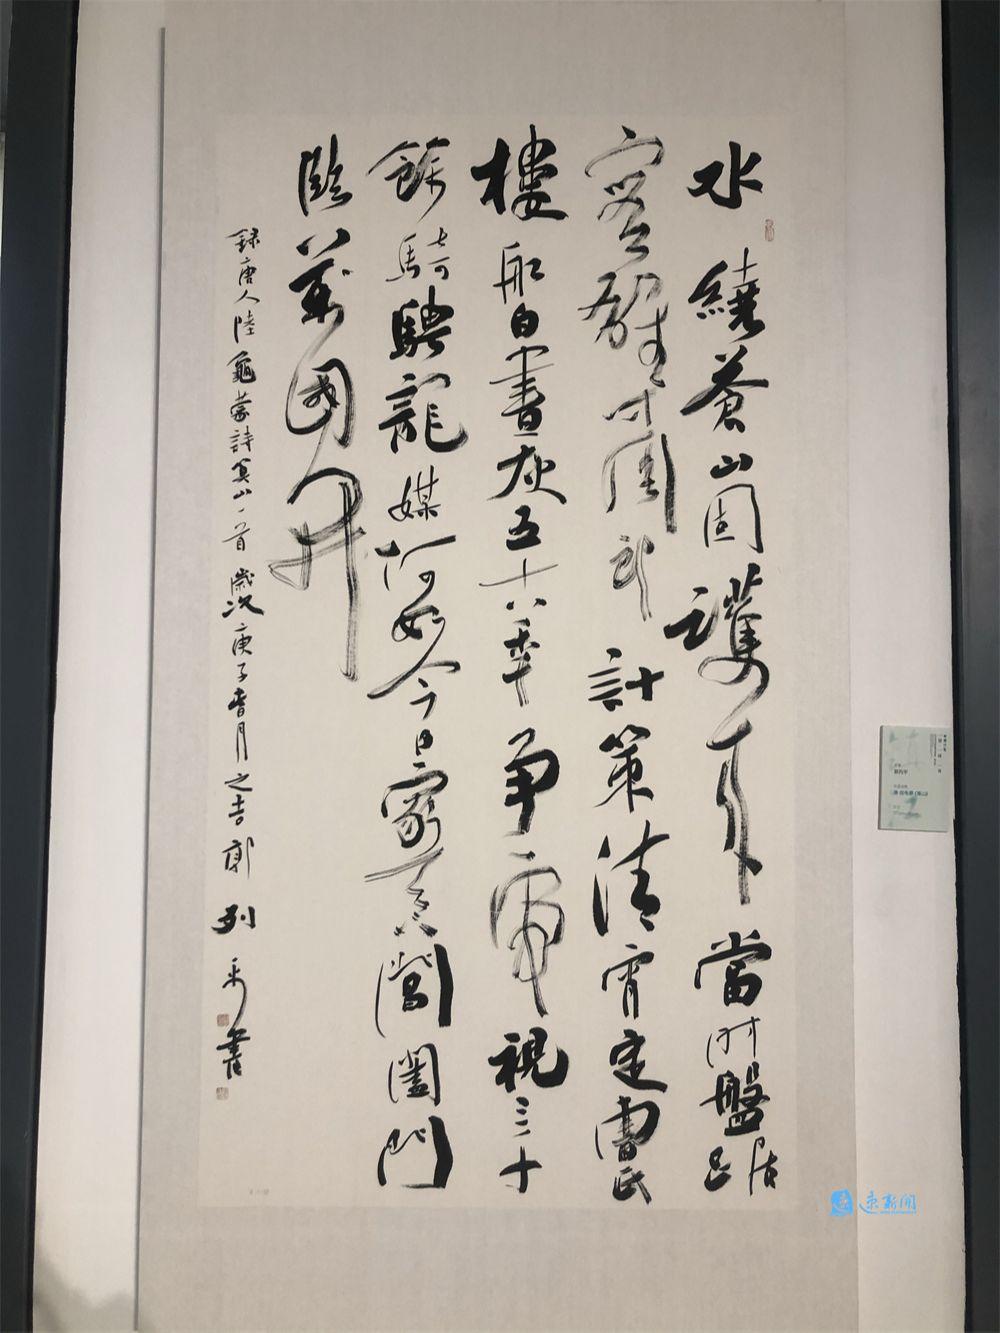 水繞蒼山固護來當時盤踞
實雄才周郎計策清宵定曹氏
樓船白晝灰五十八年爭虎視三千
餘騎騁龍媒何如今日家天下閶闔門
臨萬國開
錄唐人陸龜蒙詩算山一首歲次庚子春月之吉郭列平書
郭列平
速新闻